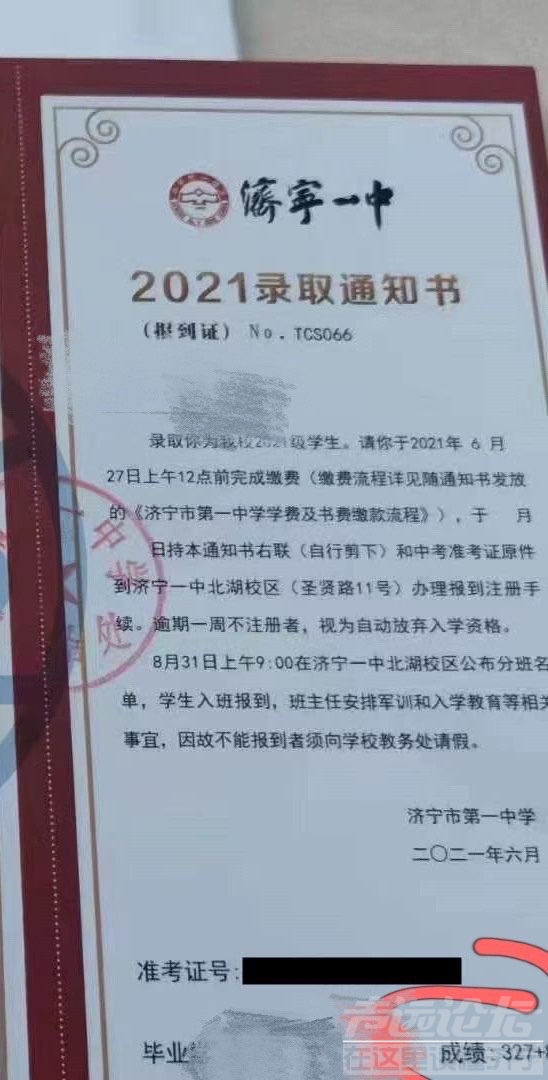 濟寧一中
2021录取通知书
(报到证) No.TCS066
录取你为我校2021级学生。请你于2021年 6 月
27日上午12点前完成缴费（缴费流程详见随通知书发放
的《济宁市第一中学学费及书费缴款流程》），于 月
日持本通知书右联（自行剪下）和中考准考证原件
到济宁一中北湖校区（圣贤路11号）办理报到注册手
续。逾期一周不注册者，视为自动放弃入学资格。
8月31日上午9:00在济宁一中北湖校区公布分班名
单，学生入班报到，班主任安排军训和入学教育等相关
事宜，因故不能报到者须向学校教务处请假。
济宁市第一中学
二〇二一年六月
准考证号:
毕业
成绩:327+